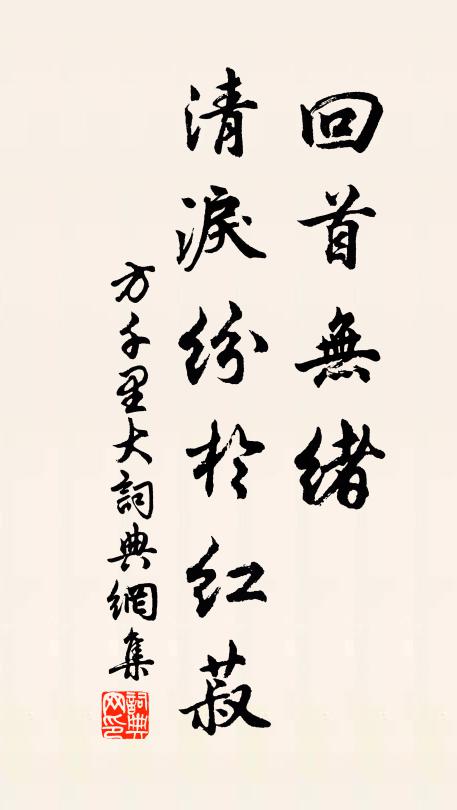 回首無緒
清淚紛於紅菽
方千里大詞典網集
詞典网印